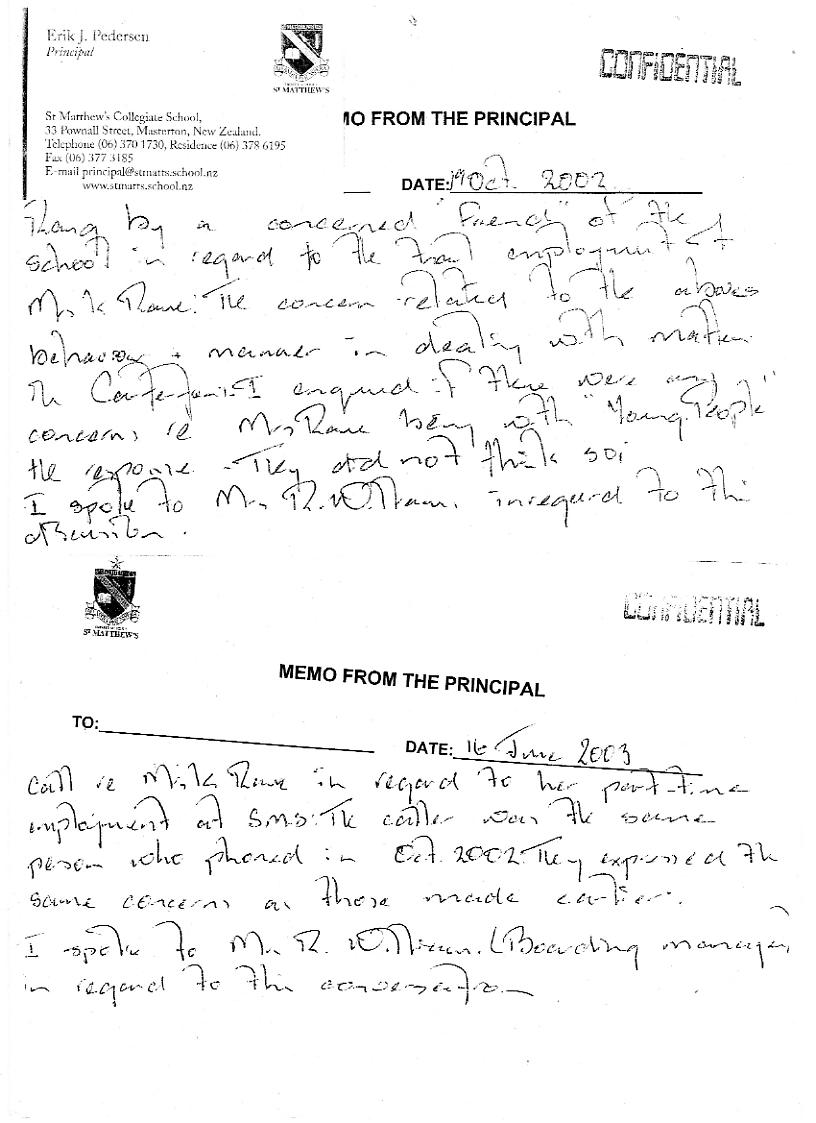 Erik J. Pedersen
Principal
ST MATTHEW'S
CONFIDENTIAL
St Matthew's Collegiate School,
33 Pownall Street, Masterton, New Zealand.
Telephone (06) 370 1730, Residence (06) 378 6195
Fax (06) 377 3185
E-mail principal@stmatts.school.nz
www.stmatts.school.nz
MO FROM THE PRINCIPAL
DATE: Oct. 2002
Rang by a concerned "Friend" of the
school in regard to the employment of
Mrs K The concern related to the
behaviour + manner in dealing with matters
I enquired if there were any
concerns re Mrs being with "Young People"
the response - They did not think so
I spoke to Mr R. in regard to this
discussion.
ST MATTHEW'S
CONFIDENTIAL
MEMO FROM THE PRINCIPAL
TO:
DATE: 16 June 2003
Call re in regard to her part-time
employment at SMS. The caller was the same
person who phoned in Oct. 2002. They expressed the
same concerns as those made earlier.
I spoke to Mr R. (Boarding manager
in regard to this conversation